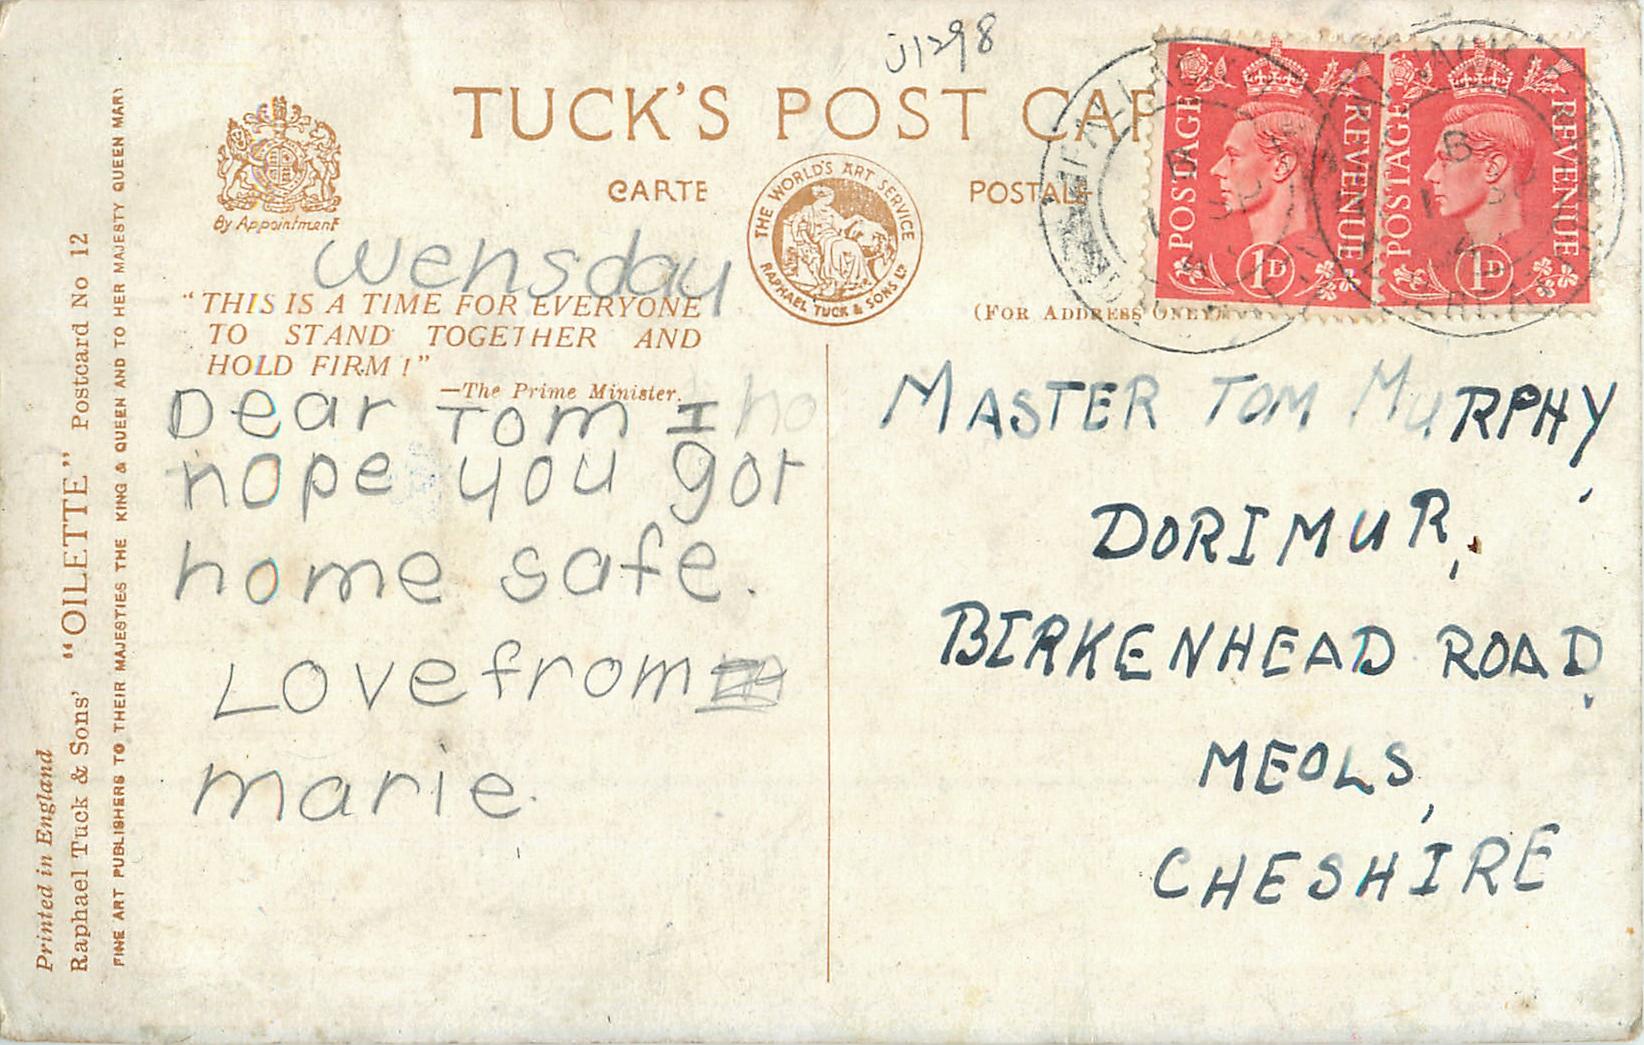 J1298
TUCK'S POST CAR
CARTE POSTALE
By Appointment
THE WORLD'S ART SERVICE
RAPHAEL TUCK & SONS LTD
POSTAGE REVENUE
1D
POSTAGE REVENUE
1D
wensday
"THIS IS A TIME FOR EVERYONE
TO STAND TOGETHER AND
HOLD FIRM!"
—The Prime Minister.
(FOR ADDRESS ONLY)
Dear Tom I ho
hope you got
home safe.
Love from
marie.
MASTER TOM MURPHY,
DORIMUR,
BIRKENHEAD ROAD,
MEOLS,
CHESHIRE
Printed in England
Raphael Tuck & Sons' "OILETTE" Postcard No 12
FINE ART PUBLISHERS TO THEIR MAJESTIES THE KING & QUEEN AND TO HER MAJESTY QUEEN MARY